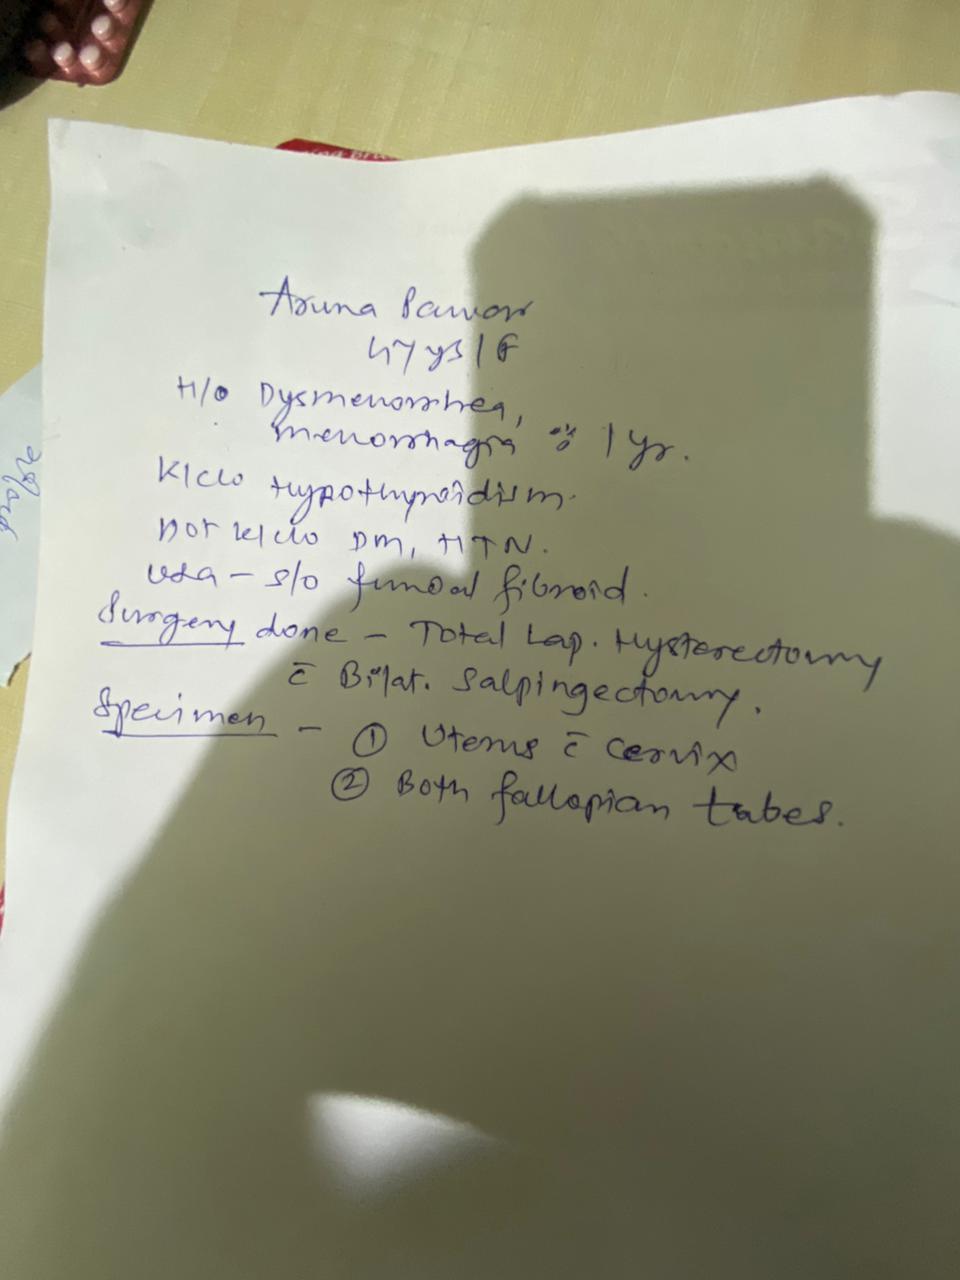 Aruna Pawar
47 ys/F
H/o Dysmenorrhea,
menorrhagia 1 yr.
K/c/o Hypothyroidism.
Not k/c/o DM, HTN.
USG - s/o fundal fibroid.
Surgery done - Total Lap. Hysterectomy
c̄ Bilat. Salpingectomy.
Specimen - ① Uterus c̄ Cervix
② Both fallopian tubes.